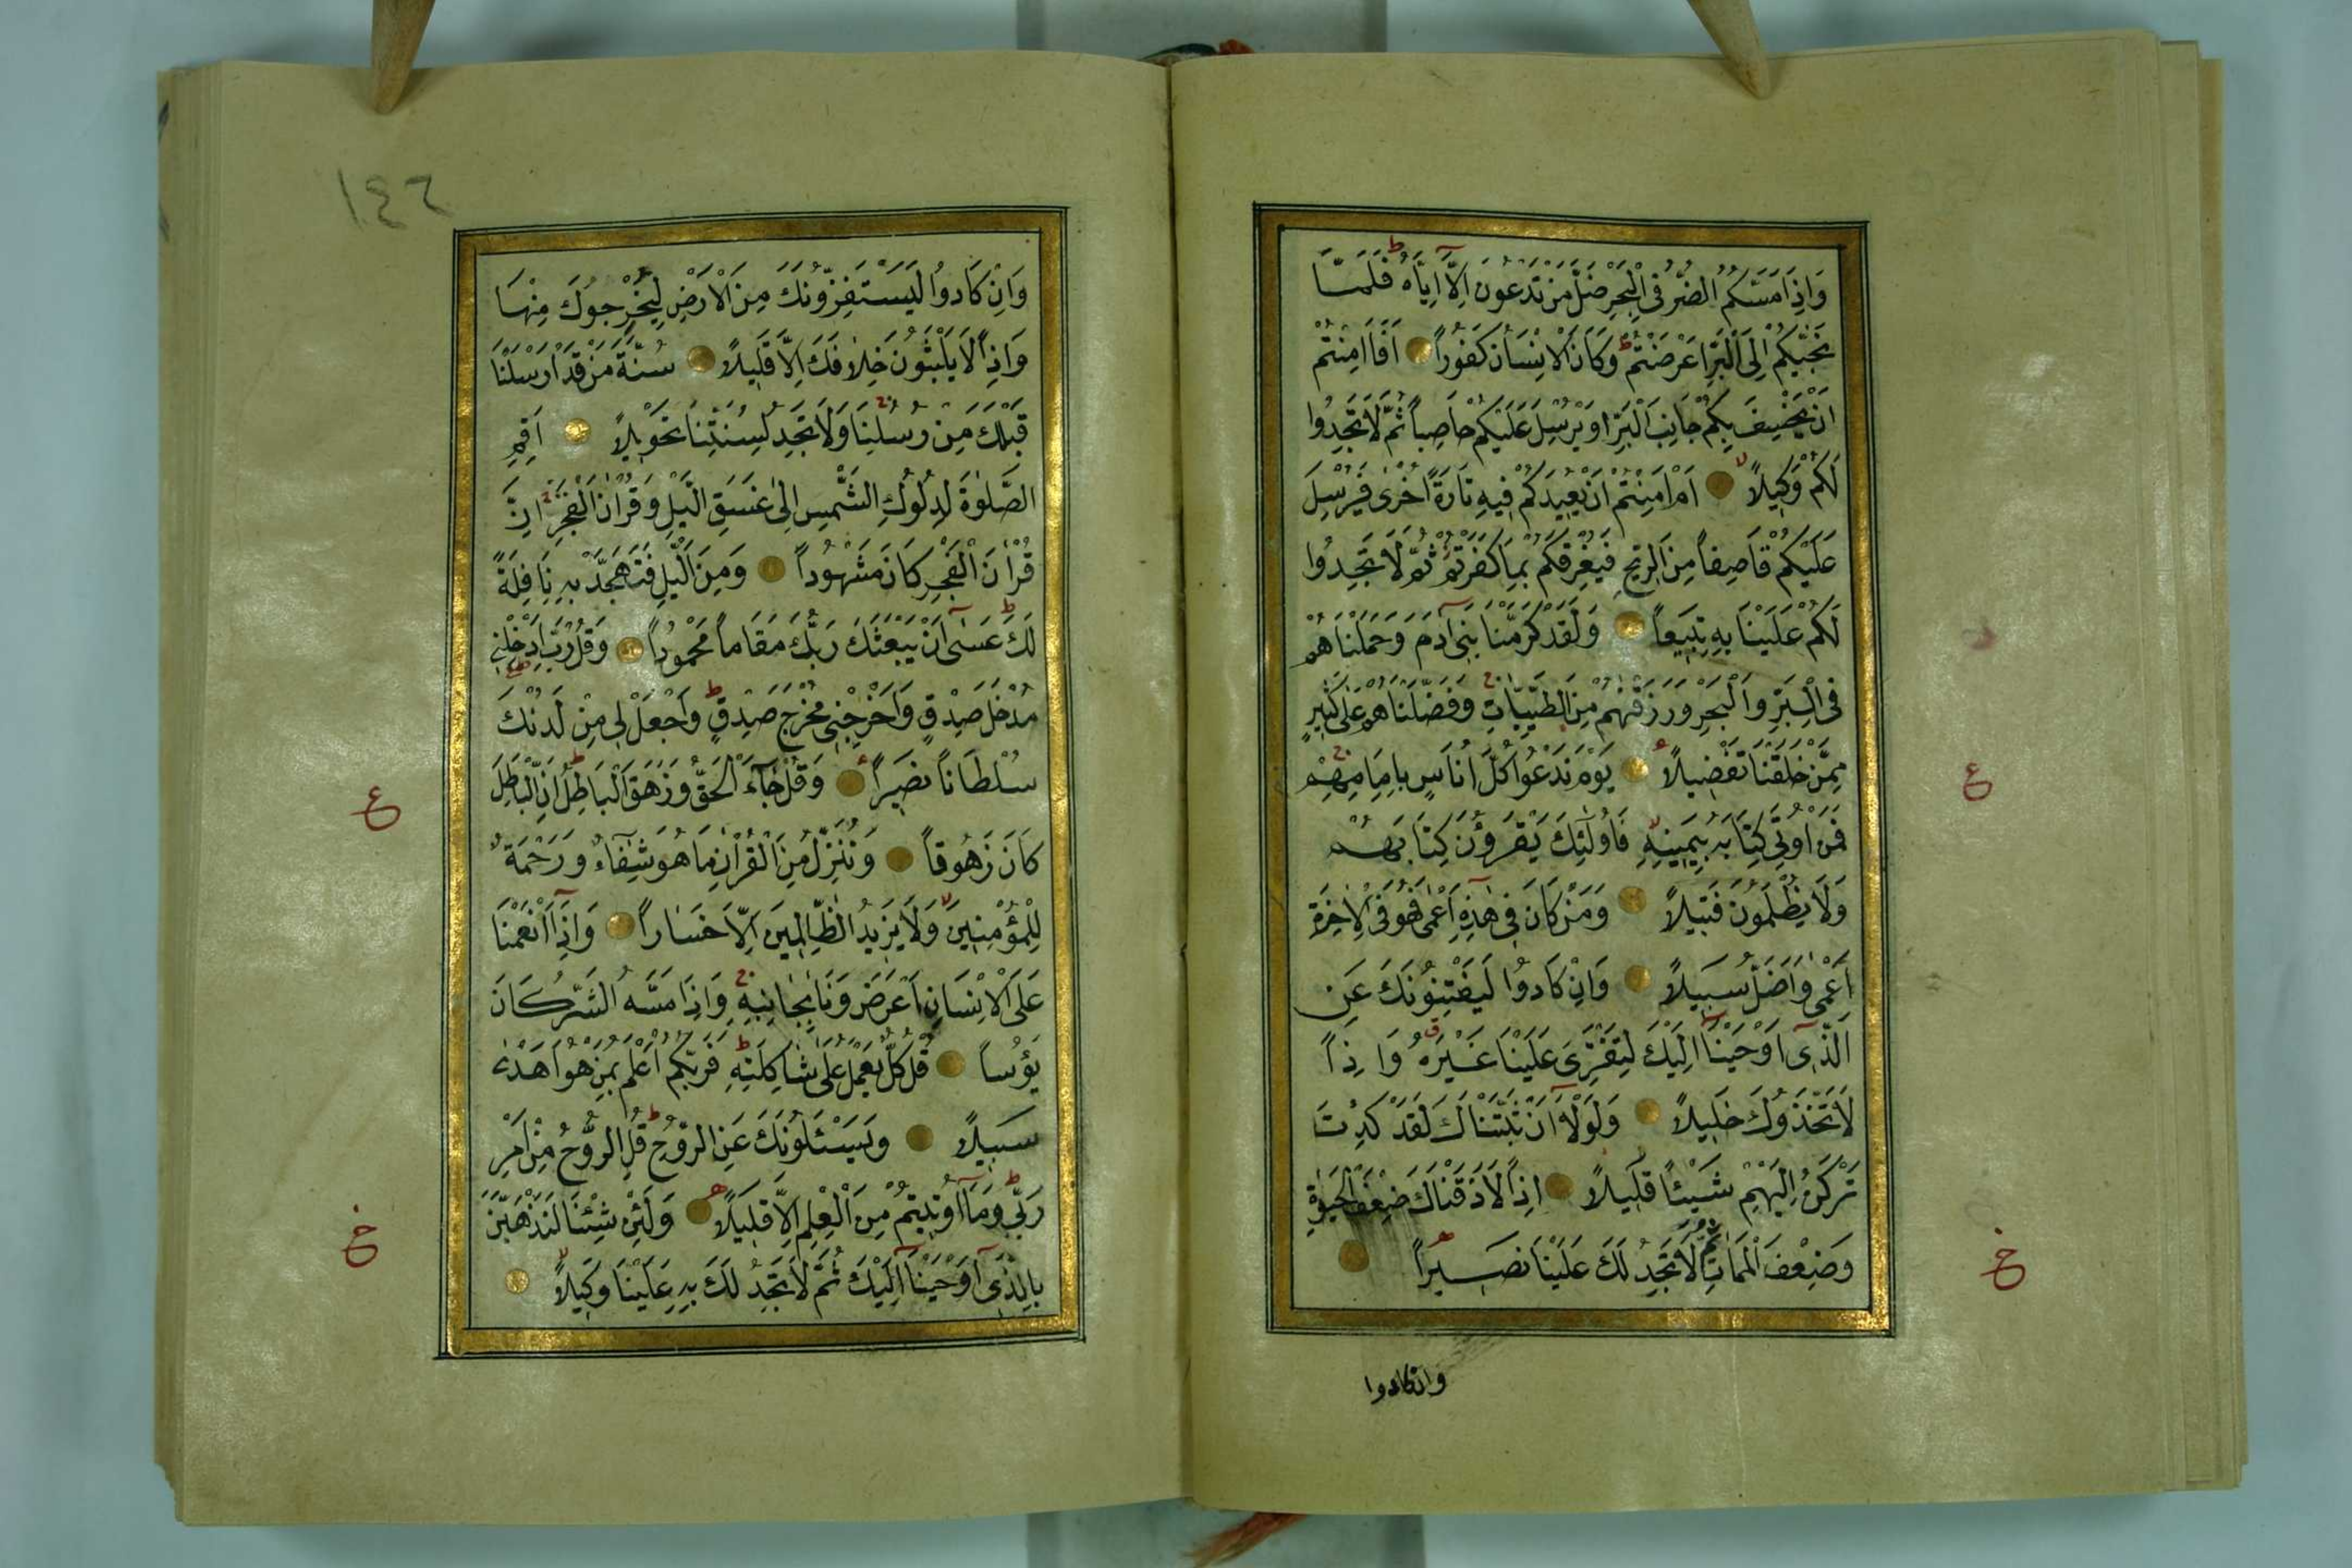 وَاِذَا مَسَّكُمُ الضُّرُّ فِى الْبَحْرِ ضَلَّ مَنْ تَدْعُونَ اِلَّٓا اِيَّاهُ فَلَمَّا
نَجّٰيكُمْ اِلَى الْبَرِّ اَعْرَضْتُمْ وَكَانَ الْاِنْسَانُ كَفُوراً اَفَاَمِنْتُمْ
اَنْ يَخْسِفَ بِكُمْ جَانِبَ الْبَرِّ اَوْ يُرْسِلَ عَلَيْكُمْ حَاصِباً ثُمَّ لَا تَجِدُوا
لَكُمْ وَكِيلاً اَمْ اَمِنْتُمْ اَنْ يُعِيدَكُمْ فِيهِ تَارَةً اُخْرٰى فَيُرْسِلَ
عَلَيْكُمْ قَاصِفاً مِنَ الرِّيحِ فَيُغْرِقَكُمْ بِمَا كَفَرْتُمْ ثُمَّ لَا تَجِدُوا
لَكُمْ عَلَيْنَا بِهِ تَبِيعاً وَلَقَدْ كَرَّمْنَا بَنِٓى اٰدَمَ وَحَمَلْنَاهُمْ
فِى الْبَرِّ وَالْبَحْرِ وَرَزَقْنٰهُمْ مِنَ الطَّيِّبَاتِ وَفَضَّلْنَاهُمْ عَلٰى كَثِيرٍ
مِمَّنْ خَلَقْنَا تَفْضِيلاً يَوْمَ نَدْعُوا كُلَّ اُنَاسٍ بِاِمَامِهِمْ
فَمَنْ اُوتِيَ كِتَابَهُ بِيَمِينِهِ فَاُولٰٓئِكَ يَقْرَؤُنَ كِتَابَهُمْ
وَلَا يُظْلَمُونَ فَتِيلاً وَمَنْ كَانَ فِى هٰذِهِٓ اَعْمٰى فَهُوَ فِى الْاٰخِرَةِ
اَعْمٰى وَاَضَلُّ سَبِيلاً وَاِنْ كَادُوا لَيَفْتِنُونَكَ عَنِ
الَّذِٓى اَوْحَيْنَٓا اِلَيْكَ لِتَفْتَرِىَ عَلَيْنَا غَيْرَهُ وَاِذاً
لَاتَّخَذُوكَ خَلِيلاً وَلَوْلَٓا اَنْ ثَبَّتْنَاكَ لَقَدْ كِدْتَ
تَرْكَنُ اِلَيْهِمْ شَيْئاً قَلِيلاً اِذاً لَاَذَقْنَاكَ ضِعْفَ الْحَيٰوةِ
وَضِعْفَ الْمَمَاتِ ثُمَّ لَا تَجِدُ لَكَ عَلَيْنَا نَصِيراً
وان كادوا
ع
ع
١٤٦
وَاِنْ كَادُوا لَيَسْتَفِزُّونَكَ مِنَ الْاَرْضِ لِيُخْرِجُوكَ مِنْهَا
وَاِذاً لَا يَلْبَثُونَ خِلَافَكَ اِلَّا قَلِيلاً سُنَّةَ مَنْ قَدْ اَرْسَلْنَا
قَبْلَكَ مِنْ رُسُلِنَا وَلَا تَجِدُ لِسُنَّتِنَا تَحْوِيلاً اَقِمِ
الصَّلٰوةَ لِدُلُوكِ الشَّمْسِ اِلٰى غَسَقِ الَّيْلِ وَقُرْاٰنَ الْفَجْرِ اِنَّ
قُرْاٰنَ الْفَجْرِ كَانَ مَشْهُوداً وَمِنَ الَّيْلِ فَتَهَجَّدْ بِهِ نَافِلَةً
لَكَ عَسٰٓى اَنْ يَبْعَثَكَ رَبُّكَ مَقَاماً مَحْمُوداً وَقُلْ رَبِّ اَدْخِلْنِى
مُدْخَلَ صِدْقٍ وَاَخْرِجْنِى مُخْرَجَ صِدْقٍ وَاجْعَلْ لِى مِنْ لَدُنْكَ
سُلْطَاناً نَصِيراً وَقُلْ جَٓاءَ الْحَقُّ وَزَهَقَ الْبَاطِلُ اِنَّ الْبَاطِلَ
كَانَ زَهُوقاً وَنُنَزِّلُ مِنَ الْقُرْاٰنِ مَا هُوَ شِفَٓاءٌ وَرَحْمَةٌ
لِلْمُؤْمِنِينَ وَلَا يَزِيدُ الظَّالِمِينَ اِلَّا خَسَاراً وَاِذَٓا اَنْعَمْنَا
عَلَى الْاِنْسَانِ اَعْرَضَ وَنَاٰ بِجَانِبِهِ وَاِذَا مَسَّهُ الشَّرُّ كَانَ
يَؤُساً قُلْ كُلٌّ يَعْمَلُ عَلٰى شَاكِلَتِهِ فَرَبُّكُمْ اَعْلَمُ بِمَنْ هُوَ اَهْدٰى
سَبِيلاً وَيَسْئَلُونَكَ عَنِ الرُّوحِ قُلِ الرُّوحُ مِنْ اَمْرِ
رَبِّى وَمَٓا اُوتِيتُمْ مِنَ الْعِلْمِ اِلَّا قَلِيلاً وَلَئِنْ شِئْنَا لَنَذْهَبَنَّ
بِالَّذِٓى اَوْحَيْنَٓا اِلَيْكَ ثُمَّ لَا تَجِدُ لَكَ بِهِ عَلَيْنَا وَكِيلاً